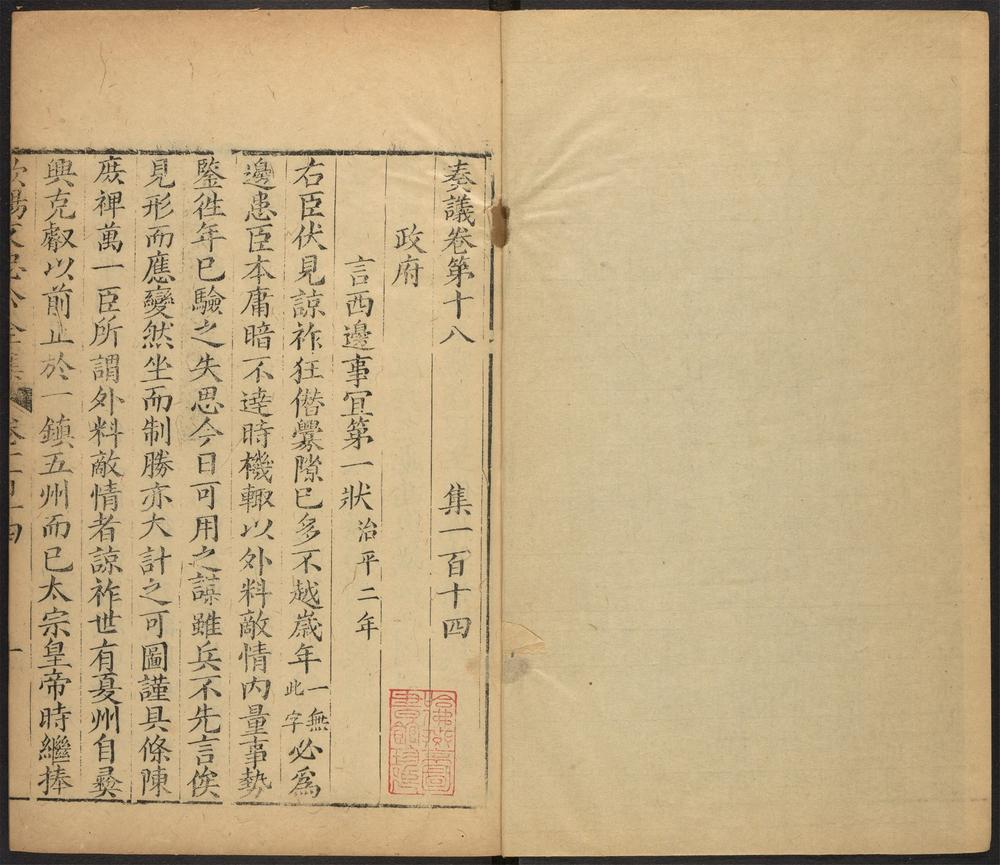 奏議卷第十八 集一百十四
政府
言西邊事宜第一狀 治平二年
右臣伏見諒祚狂僭釁隙已多不越歲年一無此字必為
邊患臣本庸暗不達時機輙以外料敵情內量事勢
鑒徃年已驗之失思今日可用之謀雖兵不先言俟
見形而應變然坐而制勝亦大計之可圖謹具條陳
庻裨萬一臣所謂外料敵情者諒祚世有夏州自彛
興克叡以前止於一鎮五州而已太宗皇帝時繼捧